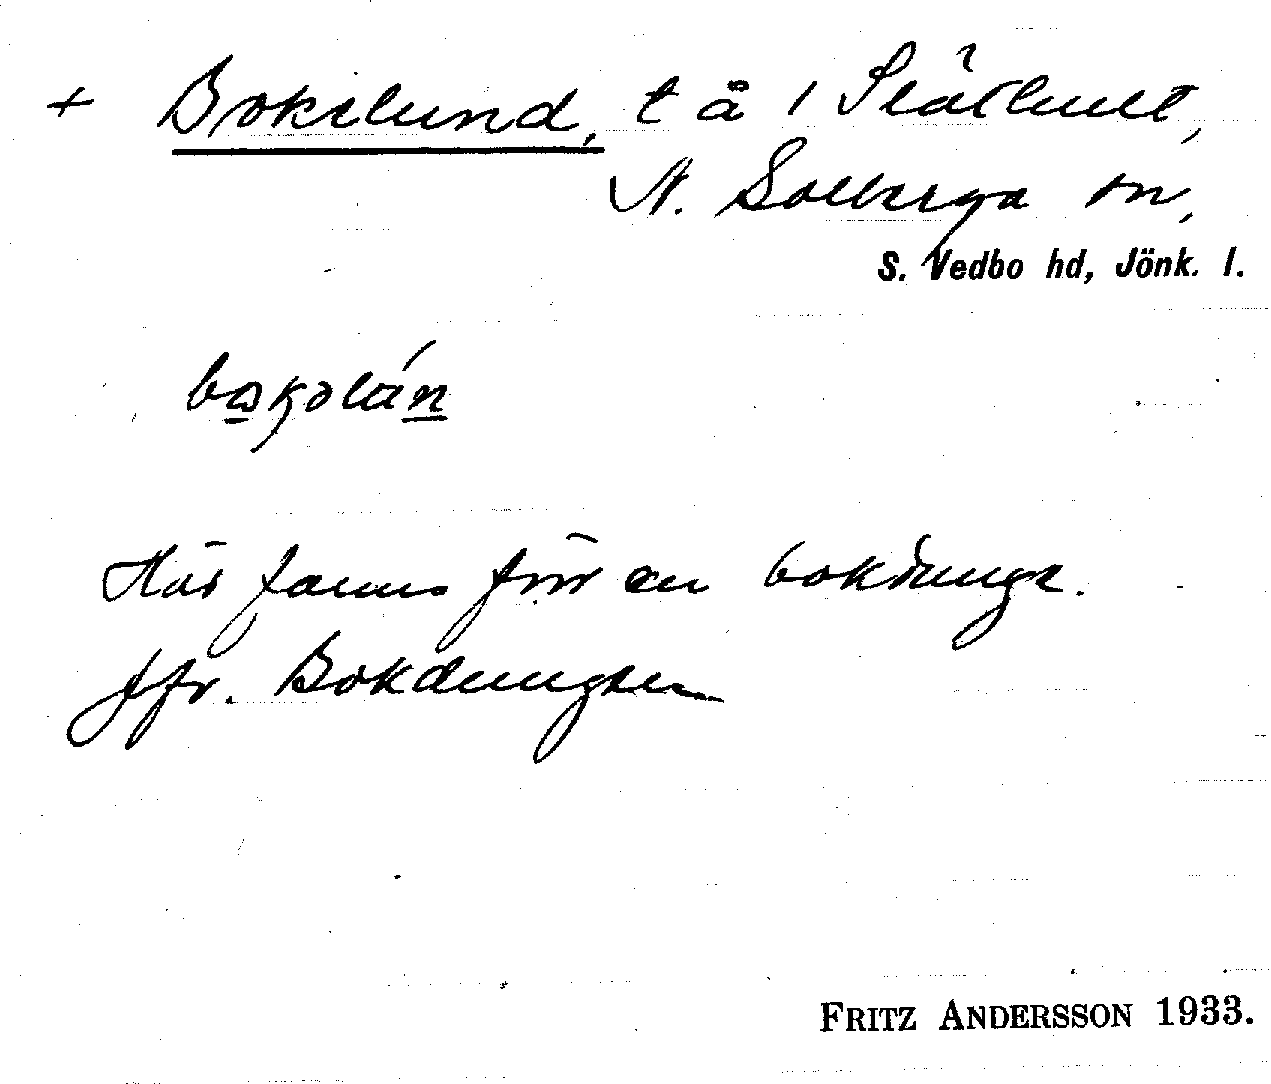 + Bokelund, t å / Släthult,
N. Solberga sn,
S. Vedbo hd, Jönk. l.
Här fanns förr en bokdunge.
Jfr. Bokdungen
FRITZ ANDERSSON 1933.